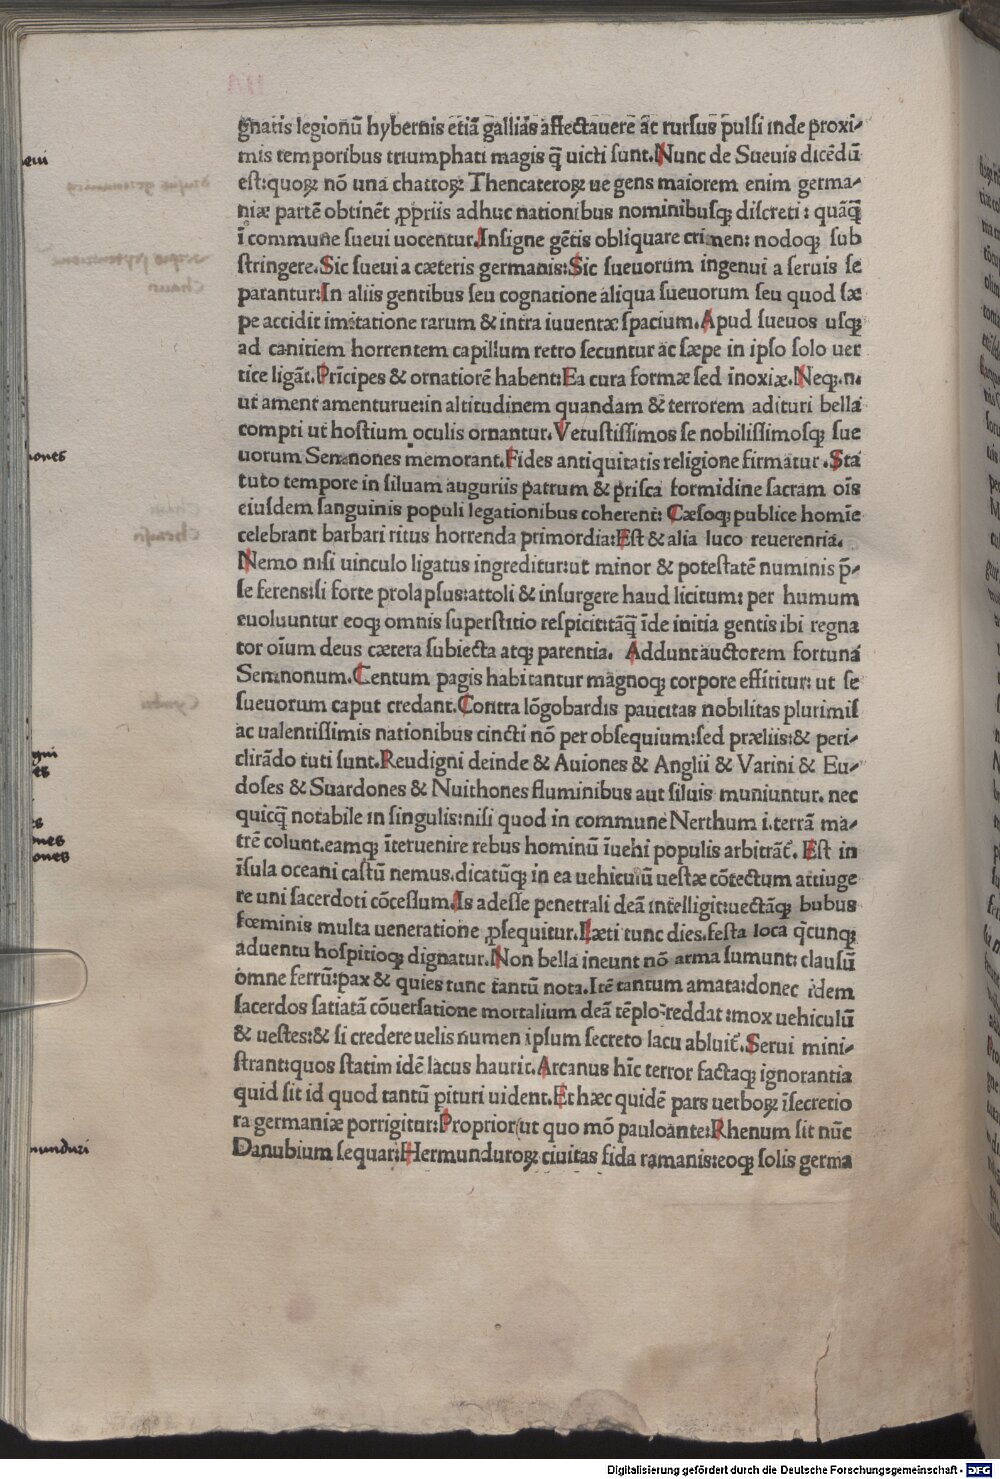 gnatis legionū hybernis etiā galliās affectauere ac rursus pulsi inde proxi-
mis temporibus triumphati magis q̄ uicti sunt. Nunc de Sueuis dicēdū
est: quoꝝ nō una chattoꝝ Thencateroꝝ ue gens maiorem enim germa-
niæ partē obtinēt ꝓpriis adhuc nationibus nominibusqꝫ discreti: quāq̄
ī commune sueui uocentur. Insigne gētis obliquare crimen: nodoqꝫ sub
stringere. Sic sueui a cæteris germanis: Sic sueuorum ingenui a seruis se
parantur: In aliis gentibus seu cognatione aliqua sueuorum seu quod sæ
pe accidit imitatione rarum & intra iuuentæ spacium. Apud sueuos usqꝫ
ad canitiem horrentem capillum retro secuntur ac sæpe in ipso solo uer
tice ligāt. Prīcipes & ornatiorē habent: Ea cura formæ sed inoxiæ. Neqꝫ.n.
ut ament amenturue: in altitudinem quandam & terrorem adituri bella
compti ut hostium oculis ornantur. Vetustissimos se nobilissimosqꝫ sue
uorum Semnones memorant. Fides antiquitatis religione firmatur. Sta
tuto tempore in siluam auguriis patrum & prisca formidine sacram oīs
eiusdem sanguinis populi legationibus coherent: Cæsoqꝫ publice homīe
celebrant barbari ritus horrenda primordia: Est & alia luco reuerenria.
Nemo nisi uinculo ligatus ingreditur: ut minor & potestatē numinis p̄-
se ferens: si forte prolapsus: attoli & insurgere haud licitum: per humum
euoluuntur eoqꝫ omnis superstitio respicit: tāq̄ īde initia gentis ibi regna
tor oīum deus cætera subiecta atqꝫ parentia. Addunt auctorem fortuna
Semnonum. Centum pagis habitantur magnoqꝫ corpore effititur: ut se
sueuorum caput credant. Contra lōgobardis paucitas nobilitas plurimis
ac ualentissimis nationibus cincti nō per obsequium: sed præliis: & peri-
clitādo tuti sunt. Reudigni deinde & Auiones & Anglii & Varini & Eu-
doses & Suardones & Nuithones fluminibus aut siluis muniuntur. nec
quicq̄ notabile in singulis: nisi quod in commune Nerthum i. terrā ma-
trē colunt. eamqꝫ īteruenire rebus hominū īuehi populis arbitrāt̄. Est in
īsula oceani castū nemus. dicatūqꝫ in ea uehiculū uestæ cōtectum attinge
re uni sacerdoti cōcessum. Is adesse penetrali deā intelligit: uectāqꝫ bubus
fœminis multa ueneratione ꝓsequitur. Læti tunc dies. festa loca q̄cunqꝫ
aduentu hospitioqꝫ dignatur. Non bella ineunt nō arma sumunt: clausū
omne ferrū: pax & quies tunc tantū nota. Itē tantum amata: donec idem
sacerdos satiatā cōuersatione mortalium deā tēplo reddat: mox uehiculū
& uestes: & si credere uelis numen ipsum secreto lacu abluit̄. Serui mini-
strant: quos statim idē lacus haurit. Arcanus hīc terror factaqꝫ ignorantia
quid sit id quod tantū pituri uident. Et hæc quidē pars uerboꝝ īsecretio
ra germaniæ porrigitur: Proprior (ut quo mō pauloante: Rhenum sit nūc
Danubium sequar: Hermunduroꝝ ciuitas fida ramanis: eoqꝫ solis germa
Digitalisierung gefördert durch die Deutsche Forschungsgemeinschaft - DFG